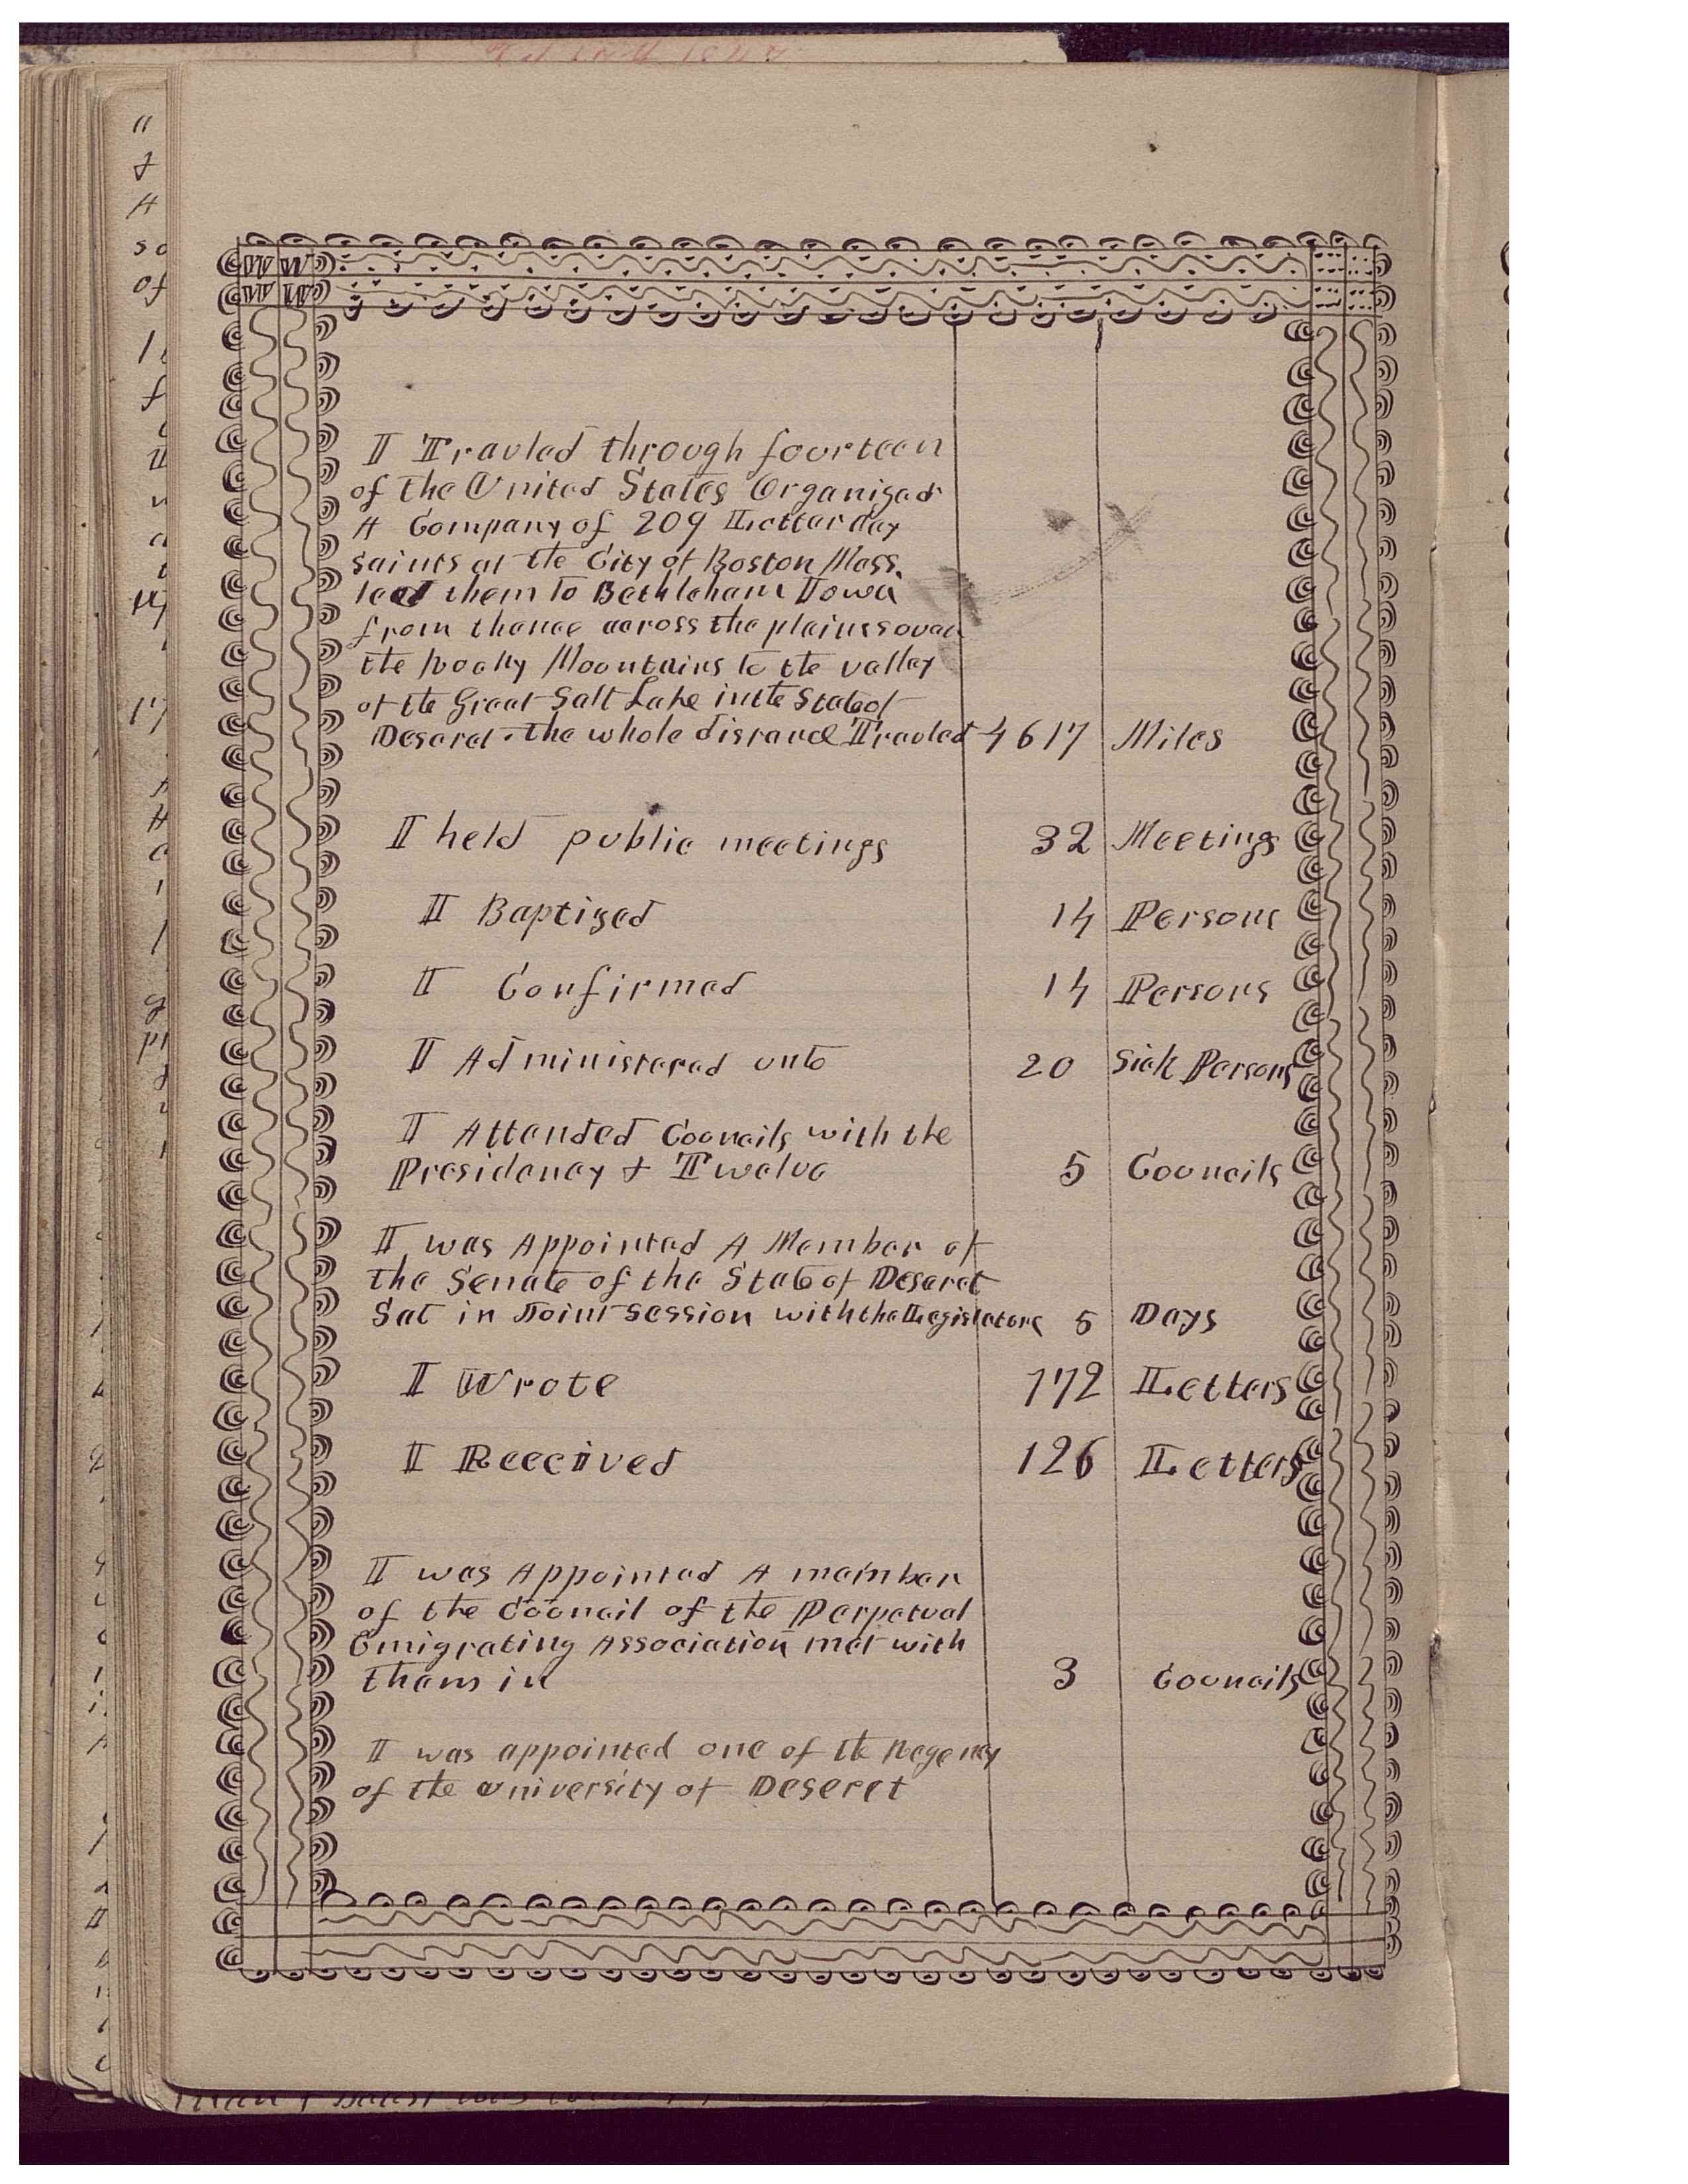 W W
W W
I Travled through fourteen
of the United States Organized
A Company of 209 Latter day
saints at the City of Boston Mass.
lead them to Bethleham Iowa
from thence across the plains over
the Rocky Mountains to the valley
of the Great Salt Lake in the State of
Deseret. the whole distance Travled 4617 Miles
I held public meetings 32 Meetings
I Baptized 14 Persons
I Confirmed 14 Persons
I Administered unto 20 Sick Persons
I Attended Councils with the
Presidency & Twelve 5 Councils
I was Appointed A Member of
the Senate of the State of Deseret
Sat in Joint Session with the Legislature 5 Days
I Wrote 172 Letters
I Received 126 Letters
I was Appointed A member
of the Council of the Perpetual
Emigrating Association met with
them in 3 Councils
I was appointed one of the Regency
of the University of Deseret